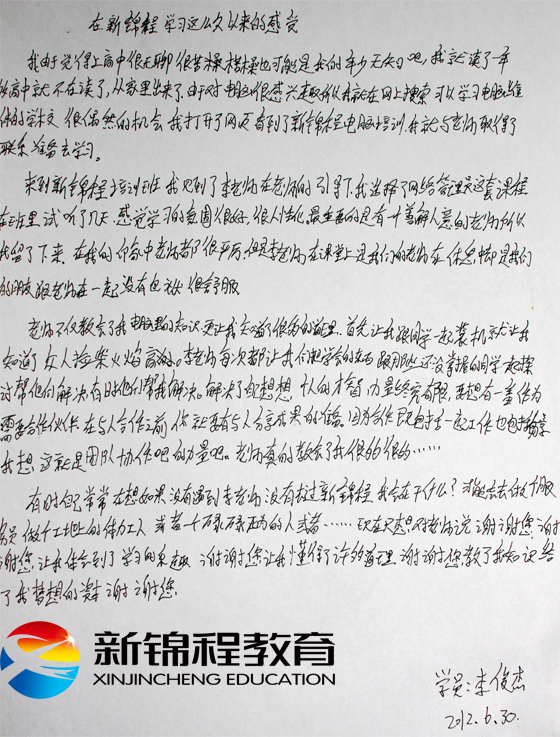 在新锦程学习这么久以来的感觉
我由于觉得上高中很无聊很苦操操也可能是我的年少无知吧,我就读了一年
高中就不在读了,从家里出来了。由于对电脑很感兴趣所以我就在网上搜索可以学习电脑维
修的学校 很偶然的机会 我打开了网页看到了新锦程电脑培训,我就与老师取得了
联系准备去学习。
来到新锦程培训班 我见到了李老师在老师的引导下我选择了网络管理员这套课程
在班里试听了几天,感觉学习的氛围很好,很人性化,最主要的是有一个善解人意的老师所以
我留了下来 在我的印象中老师都很严厉但是李老师在课堂上是我们的老师在休息中却是我们
的朋友跟老师在一起没有包袱很舒服
老师不仅教会了我电脑的知识,更让我知道了很多的道理。首先让我跟同学一起装机就让我
知道了众人拾柴火焰高的。李老师每次都让我们把学会的东西跟那些还没掌握的同学一起探
讨帮他们解决有时他们帮我解决。解决了我想想,个人的才智力量终究有限,要想有一番作为
需要合作伙伴在与人合作之前你就要有与人分享成果的准备。因为合作既包括一起工作也包括分享
我想 这就是团队协作吧的力量吧。老师真的教会了我很多的很的……
有时自己常常在想如果没有遇到李老师没有来过新锦程 我会在干什么?可能会去做个服
务员 做个工地上的伟力工人 或者一个碌碌无为的人或者……现在只想对老师说谢谢您 谢
谢您,让我体会到了学习的乐趣 谢谢您让我懂得了许多的道理 谢谢您教了我知识给
了我梦想的资本 谢谢您
新锦程教育
XINJINCHENG EDUCATION
学员:李俊杰
2012.6.30.